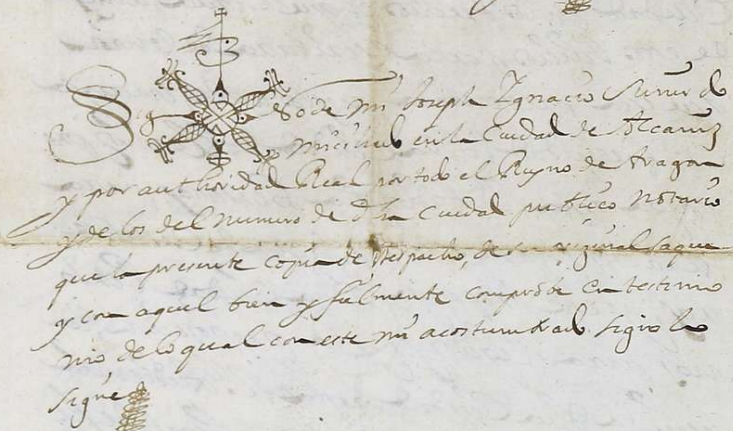 Sig no de mi Joseph Ygnacio Suñer do
miciliado en la Ciudad de Alcañiz
y por authoridad Real por todo el Reyno de Aragon
y de los del numero de dha Ciudad publico Notario
que la presente copia de despacho, de su original saque
y con aquel bien y fielmente comprobe en testimo
nio de lo qual con este mi acostumbrado signo lo
signe